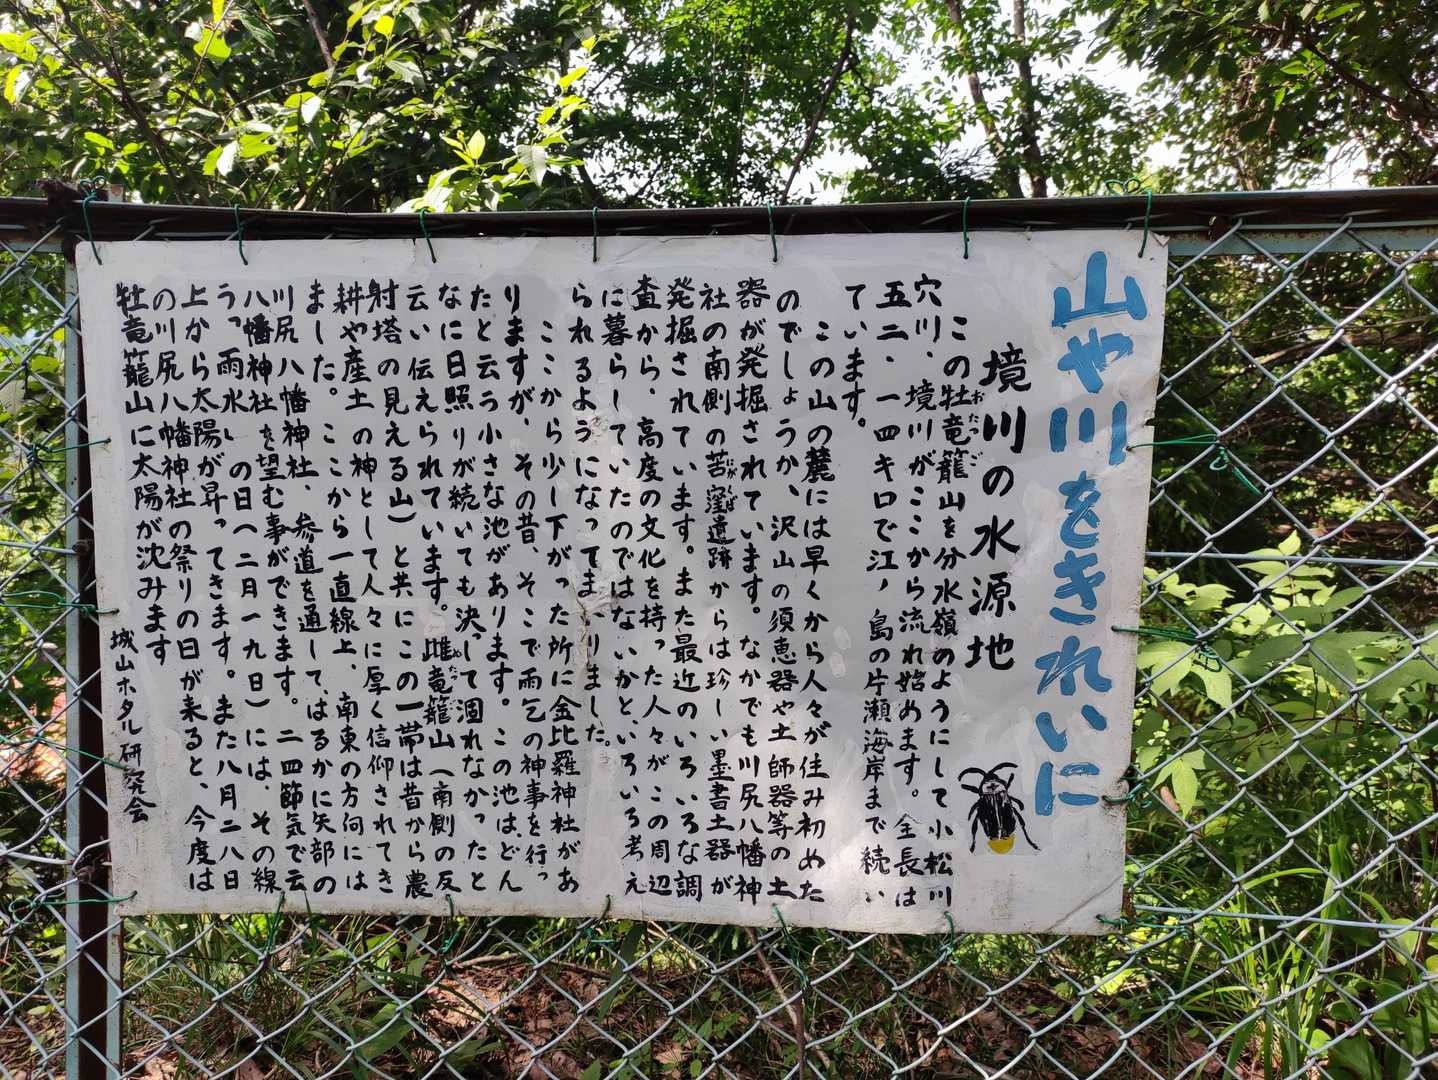 山や川をきれいに
境川の水源地
この牡竜籠山を分水嶺のようにして小松川
おたつご
穴川、境川がここから流れ始めます。全長は
五二・一四キロで江ノ島の片瀬海岸まで続い
ています。
この山の麓には早くから人々が住み初めた
のでしょうか、沢山の須恵器や土師器等の土
器が発掘されています。なかでも川尻八幡神
社の南側の苦窪遺跡からは珍しい墨書土器が
にがくぼ
発掘されています。また最近のいろいろな調
査から、高度の文化を持った人々がこの周辺
に暮らしていたのではないかと、いろいろ考え
られるようになってまいりました。
ここから少し下がった所に金比羅神社があ
りますが、その昔、そこで雨乞の神事を行っ
たと云う小さな池があります。この池は、どん
なに日照りが続いても決して涸れなかったと
云い伝えられています。雌竜籠山（南側の反
めたつ
射塔の見える山）と共にこの一帯は昔から農
耕や産土の神として人々に厚く信仰されてき
ました。ここから一直線上、南東の方向には
川尻八幡神社、参道を通して、はるかに矢部の
八幡神社を望む事ができます。二四節気で云
う「雨水」の日（二月一九日）には、その線
上から太陽が昇ってきます。また八月二八日
の川尻八幡神社の祭りの日が来ると、今度は
牡竜籠山に太陽が沈みます
城山ホタル研究会